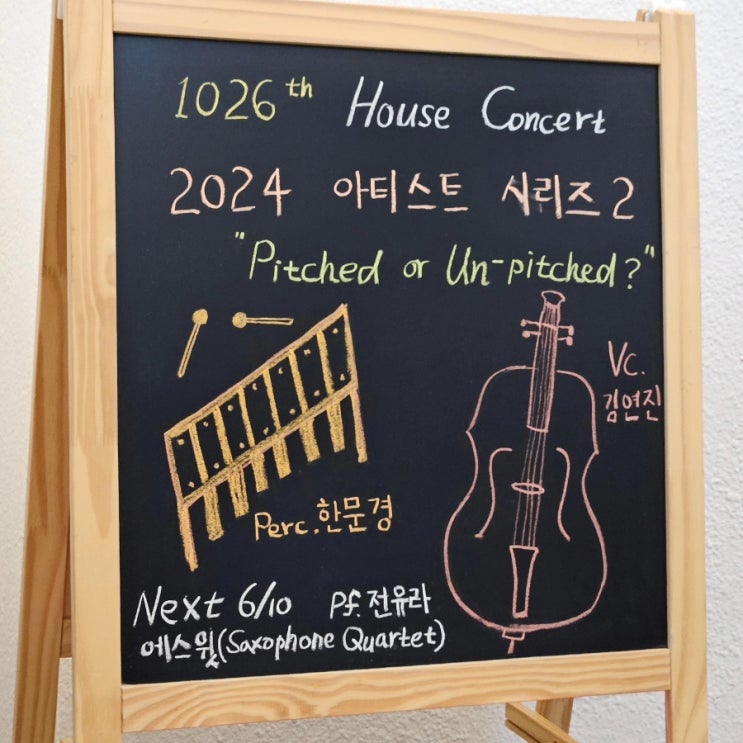 1026th House Concert
2024 아티스트 시리즈 2
"Pitched or Un-pitched?"
Vc.
김연진
Perc. 한문경
Next 6/10 Pf. 전유라
에스윗(Saxophone Quartet)